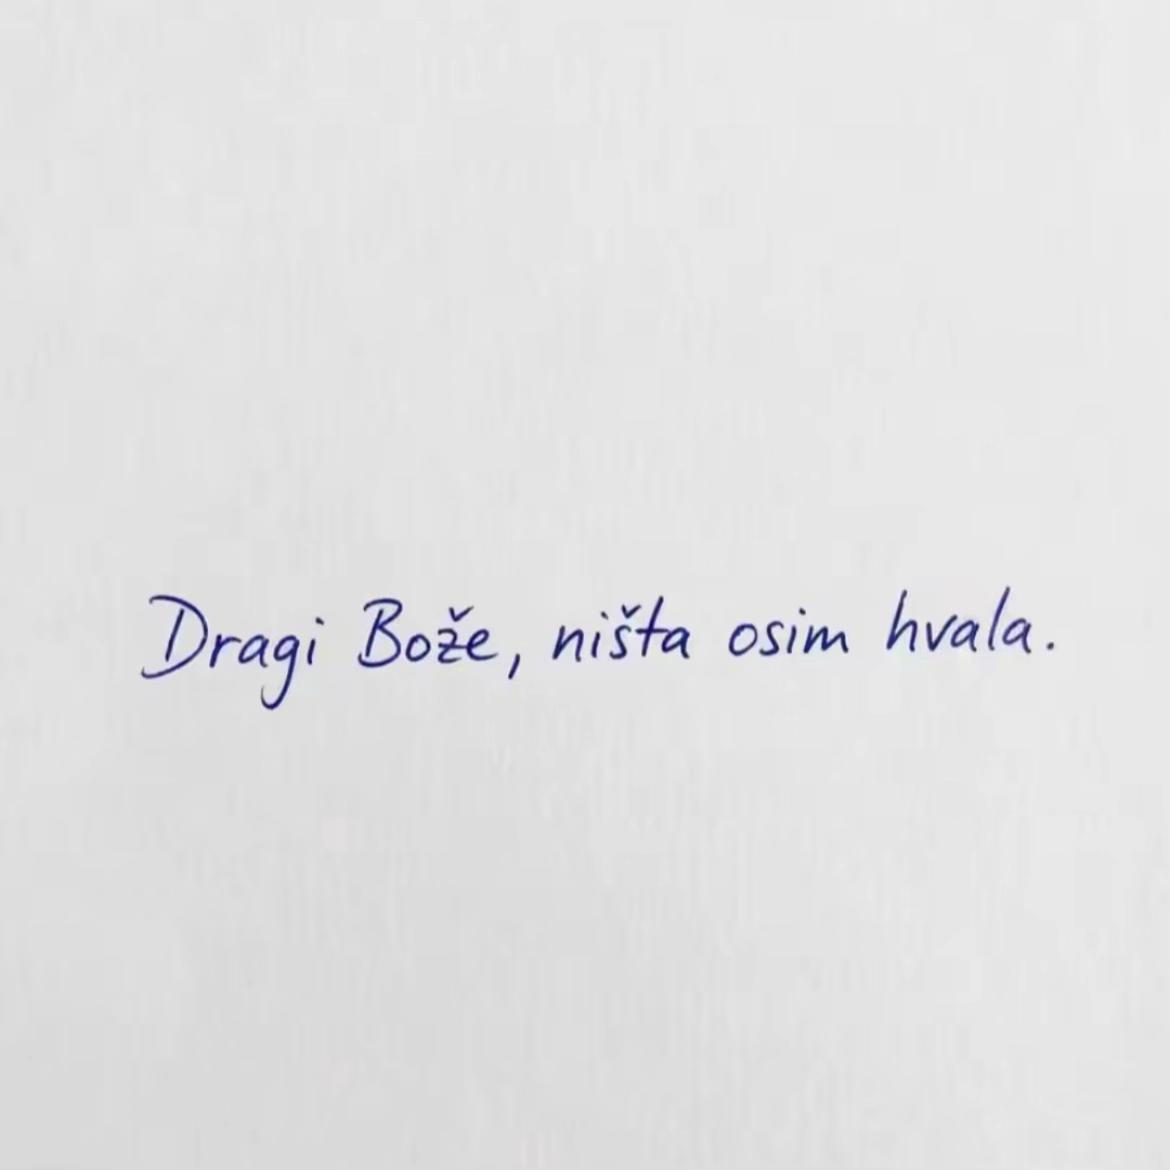 Dragi Bože, ništa osim hvala.